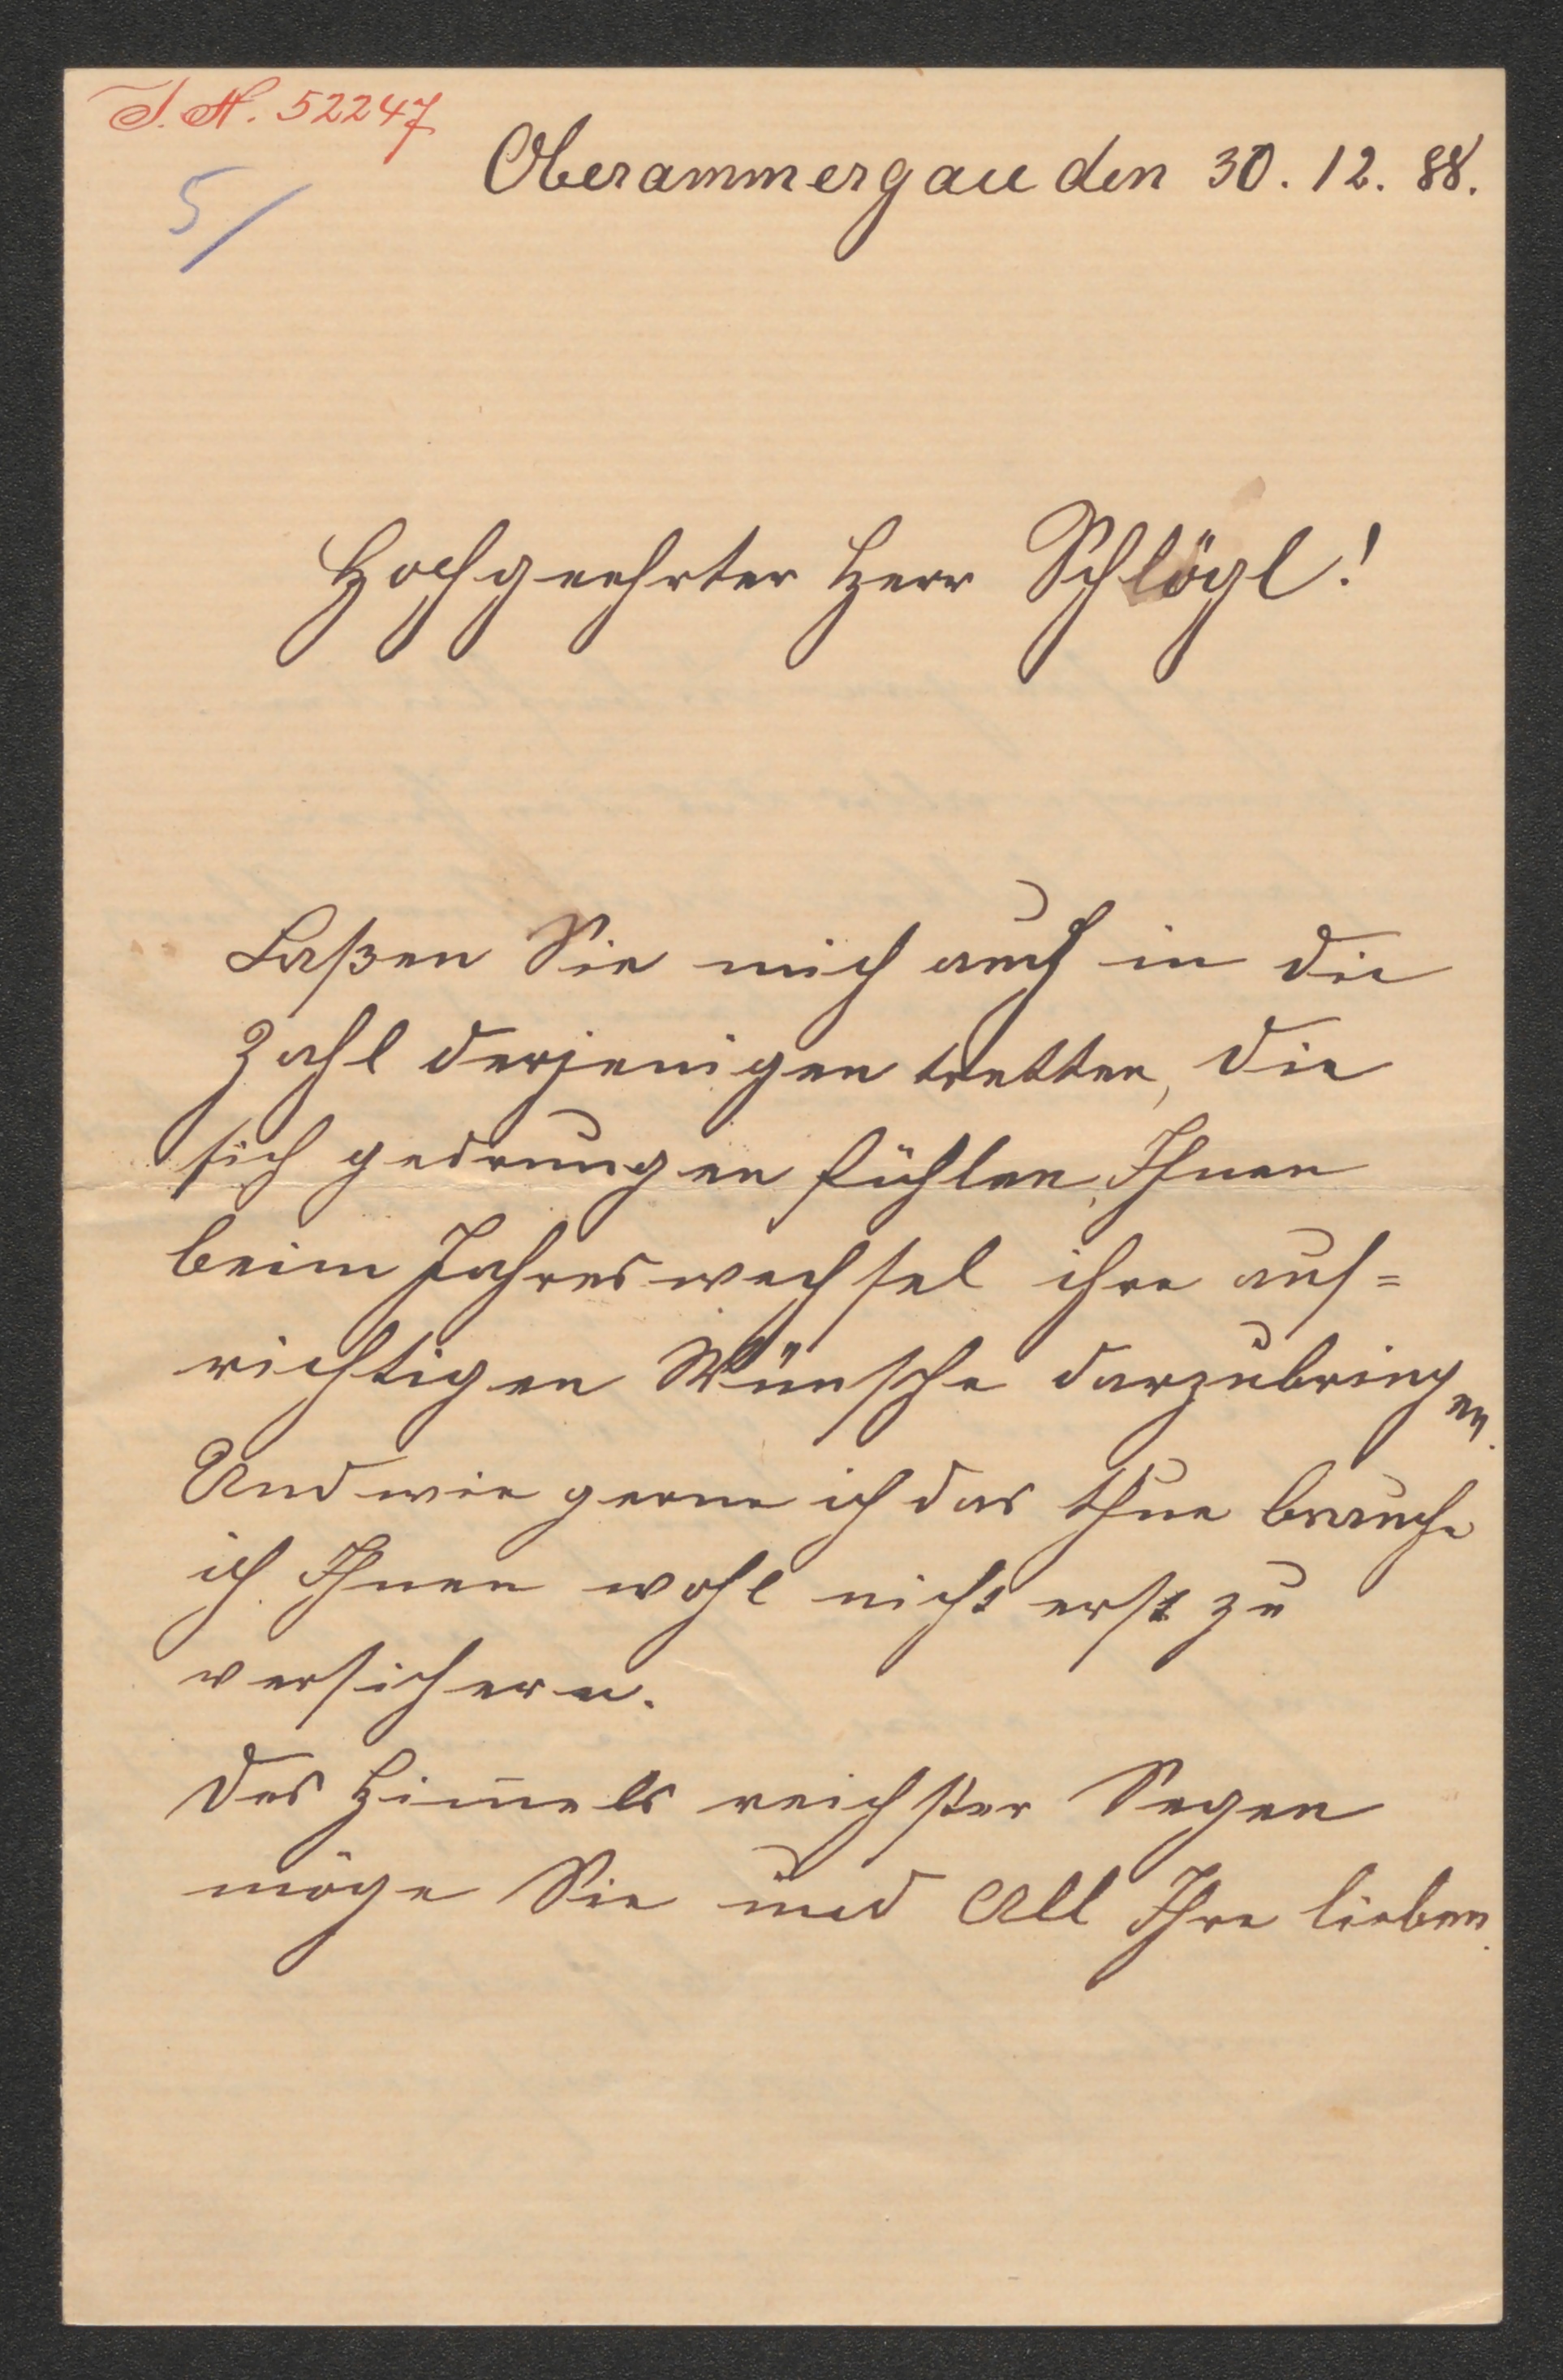 I. N. 52247
5/
Oberammergau den 30. 12. 88.
Hochgeehrter Herr Schlögl!
Laßen Sie mich auch in die
Zahl derjenigen tretten, die
sich gedrungen fühlen, Ihnen
beim Jahreswechsel ihre auf=
richtigen Wünsche darzubringen.
Und wie gerne ich das thue brauche
ich Ihnen wohl nicht erst zu
versichern.
Des Him̅els reichster Segen
möge Sie und All Ihre lieben